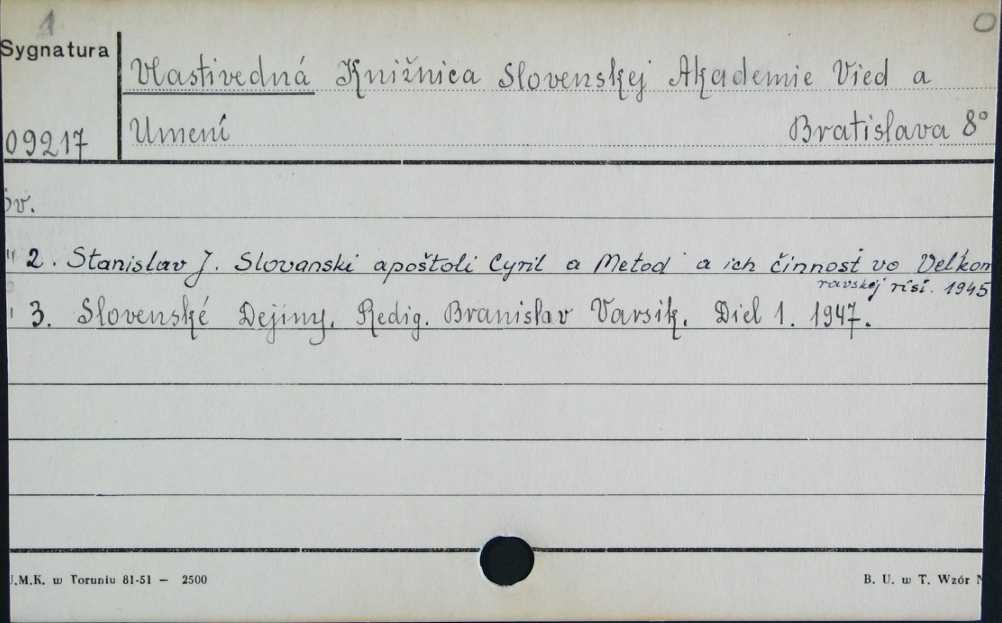 1
Sygnatura
Vlastivedná Knižnica Slovenskej Akademie Vied a
09217
Umení Bratislava 8°
öv.
" 2. Stanislav J. Slovanski apoštoli Cyril a Metod a ich činnosť vo Velkom
ravskej rísi. 1945
" 3. Slovenské Dejiny. Redig. Branislav Varsik. Diel 1. 1947.
U.M.K. w Toruniu 81-51 — 2500
B. U. w T. Wzór N